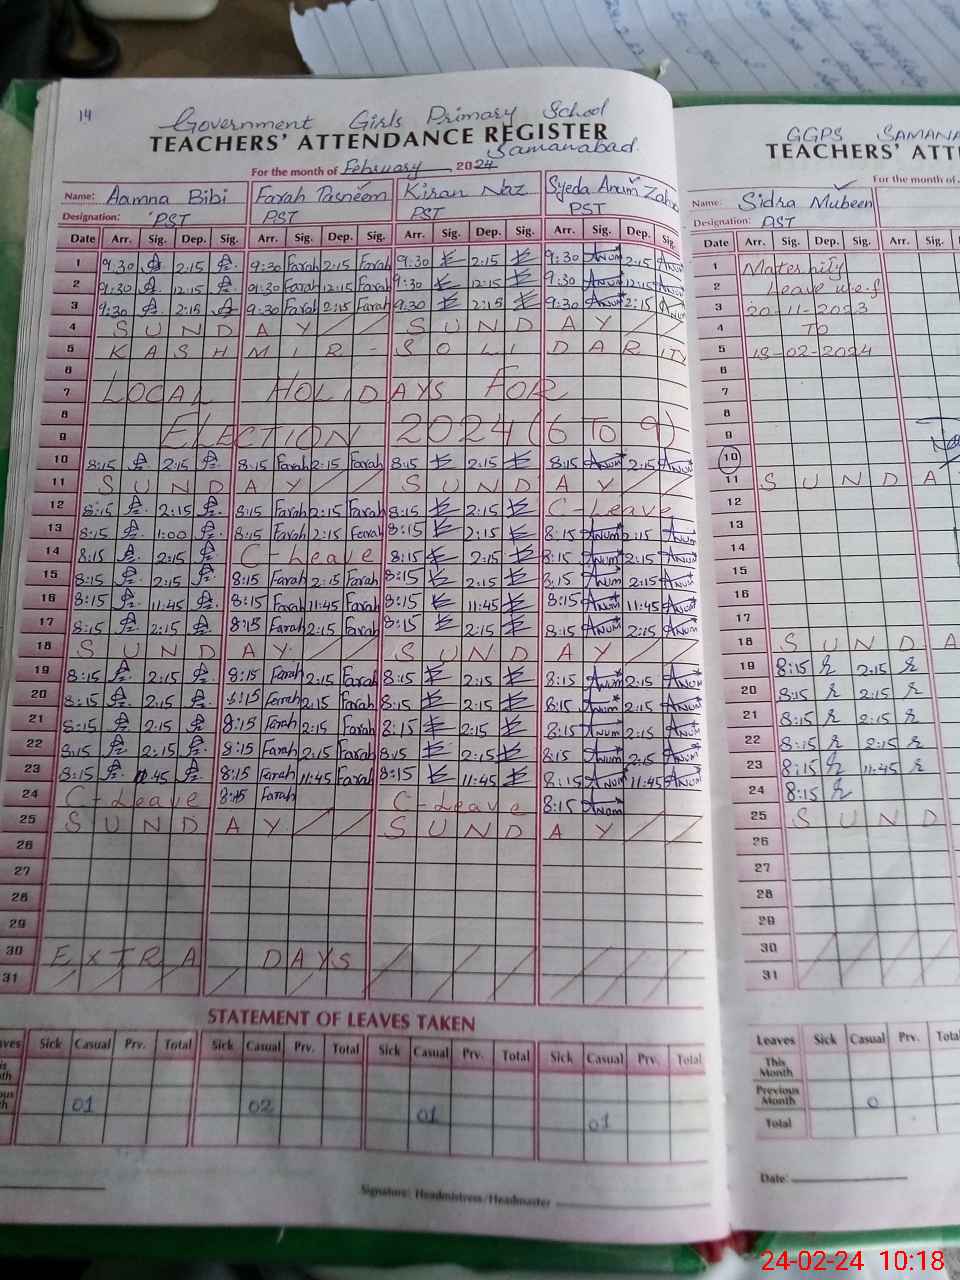 14
Government Girls Primary School
TEACHERS' ATTENDANCE REGISTER
Samanabad
For the month of February 2024
Name: Aamna Bibi Farah Tasneem Kiran Naz Syeda Anum Zahra
Designation: PST PST PST PST
Date Arr. Sig. Dep. Sig. Arr. Sig. Dep. Sig. Arr. Sig. Dep. Sig. Arr. Sig. Dep. Sig.
1 9:30 2:15 9:30 Farah 2:15 Farah 9:30 2:15 9:30 Anum 2:15 Anum
2 9:30 12:15 9:30 Farah 12:15 Farah 9:30 12:15 9:30 Anum 12:15 Anum
3 9:30 2:15 9:30 Farah 2:15 Farah 9:30 2:15 9:30 Anum 2:15
4 S U N D A Y S U N D A Y
5 K A S H M I R - S O L I D A R I T Y
6
7 LOCAL HOLIDAYS FOR
8
9 ELECTION 2024 (6 TO 9)
10 8:15 2:15 8:15 Farah 2:15 Farah 8:15 2:15 8:15 Anum 2:15 Anum
11 S U N D A Y S U N D A Y
12 8:15 2:15 8:15 Farah 2:15 Farah 8:15 2:15 C-Leave
13 8:15 1:00 8:15 Farah 2:15 Farah 8:15 2:15 8:15 Anum 2:15 Anum
14 8:15 2:15 C-Leave 8:15 2:15 8:15 Anum 2:15 Anum
15 8:15 2:15 8:15 Farah 2:15 Farah 8:15 2:15 8:15 Anum 2:15 Anum
16 8:15 11:45 8:15 Farah 11:45 Farah 8:15 11:45 8:15 Anum 11:45 Anum
17 8:15 2:15 8:15 Farah 2:15 Farah 8:15 2:15 8:15 Anum 2:15 Anum
18 S U N D A Y S U N D A Y
19 8:15 2:15 8:15 Farah 2:15 Farah 8:15 2:15 8:15 Anum 2:15 Anum
20 8:15 2:15 8:15 Farah 2:15 Farah 8:15 2:15 8:15 Anum 2:15 Anum
21 8:15 2:15 8:15 Farah 2:15 Farah 8:15 2:15 8:15 Anum 2:15 Anum
22 8:15 2:15 8:15 Farah 2:15 Farah 8:15 2:15 8:15 Anum 2:15 Anum
23 8:15 11:45 8:15 Farah 11:45 Farah 8:15 11:45 8:15 Anum 11:45 Anum
24 C-Leave 8:15 Farah C-Leave 8:15 Anum
25 S U N D A Y S U N D A Y
26
27
28
29
30 E X T R A D A Y S
31
STATEMENT OF LEAVES TAKEN
Sick Casual Prv. Total Sick Casual Prv. Total Sick Casual Prv. Total Sick Casual Prv. Total
01 02 01 01
Signature: Headmistress/Headmaster
GGPS SAMANA
TEACHERS' ATT
For the month of
Name: Sidra Mubeen
Designation: PST
Date Arr. Sig. Dep. Sig. Arr. Sig.
1 Maternity
2 Leave w.e.f
3 20-11-2023
4 To
5 18-02-2024
6
7
8
9
10
11 S U N D A
12
13
14
15
16
17
18 S U N D A
19 8:15 2:15
20 8:15 2:15
21 8:15 2:15
22 8:15 2:15
23 8:15 11:45
24 8:15
25 S U N D
26
27
28
29
30
31
Leaves Sick Casual Prv. Total
This Month
Previous Month 0
Total
Date:
24-02-24 10:18